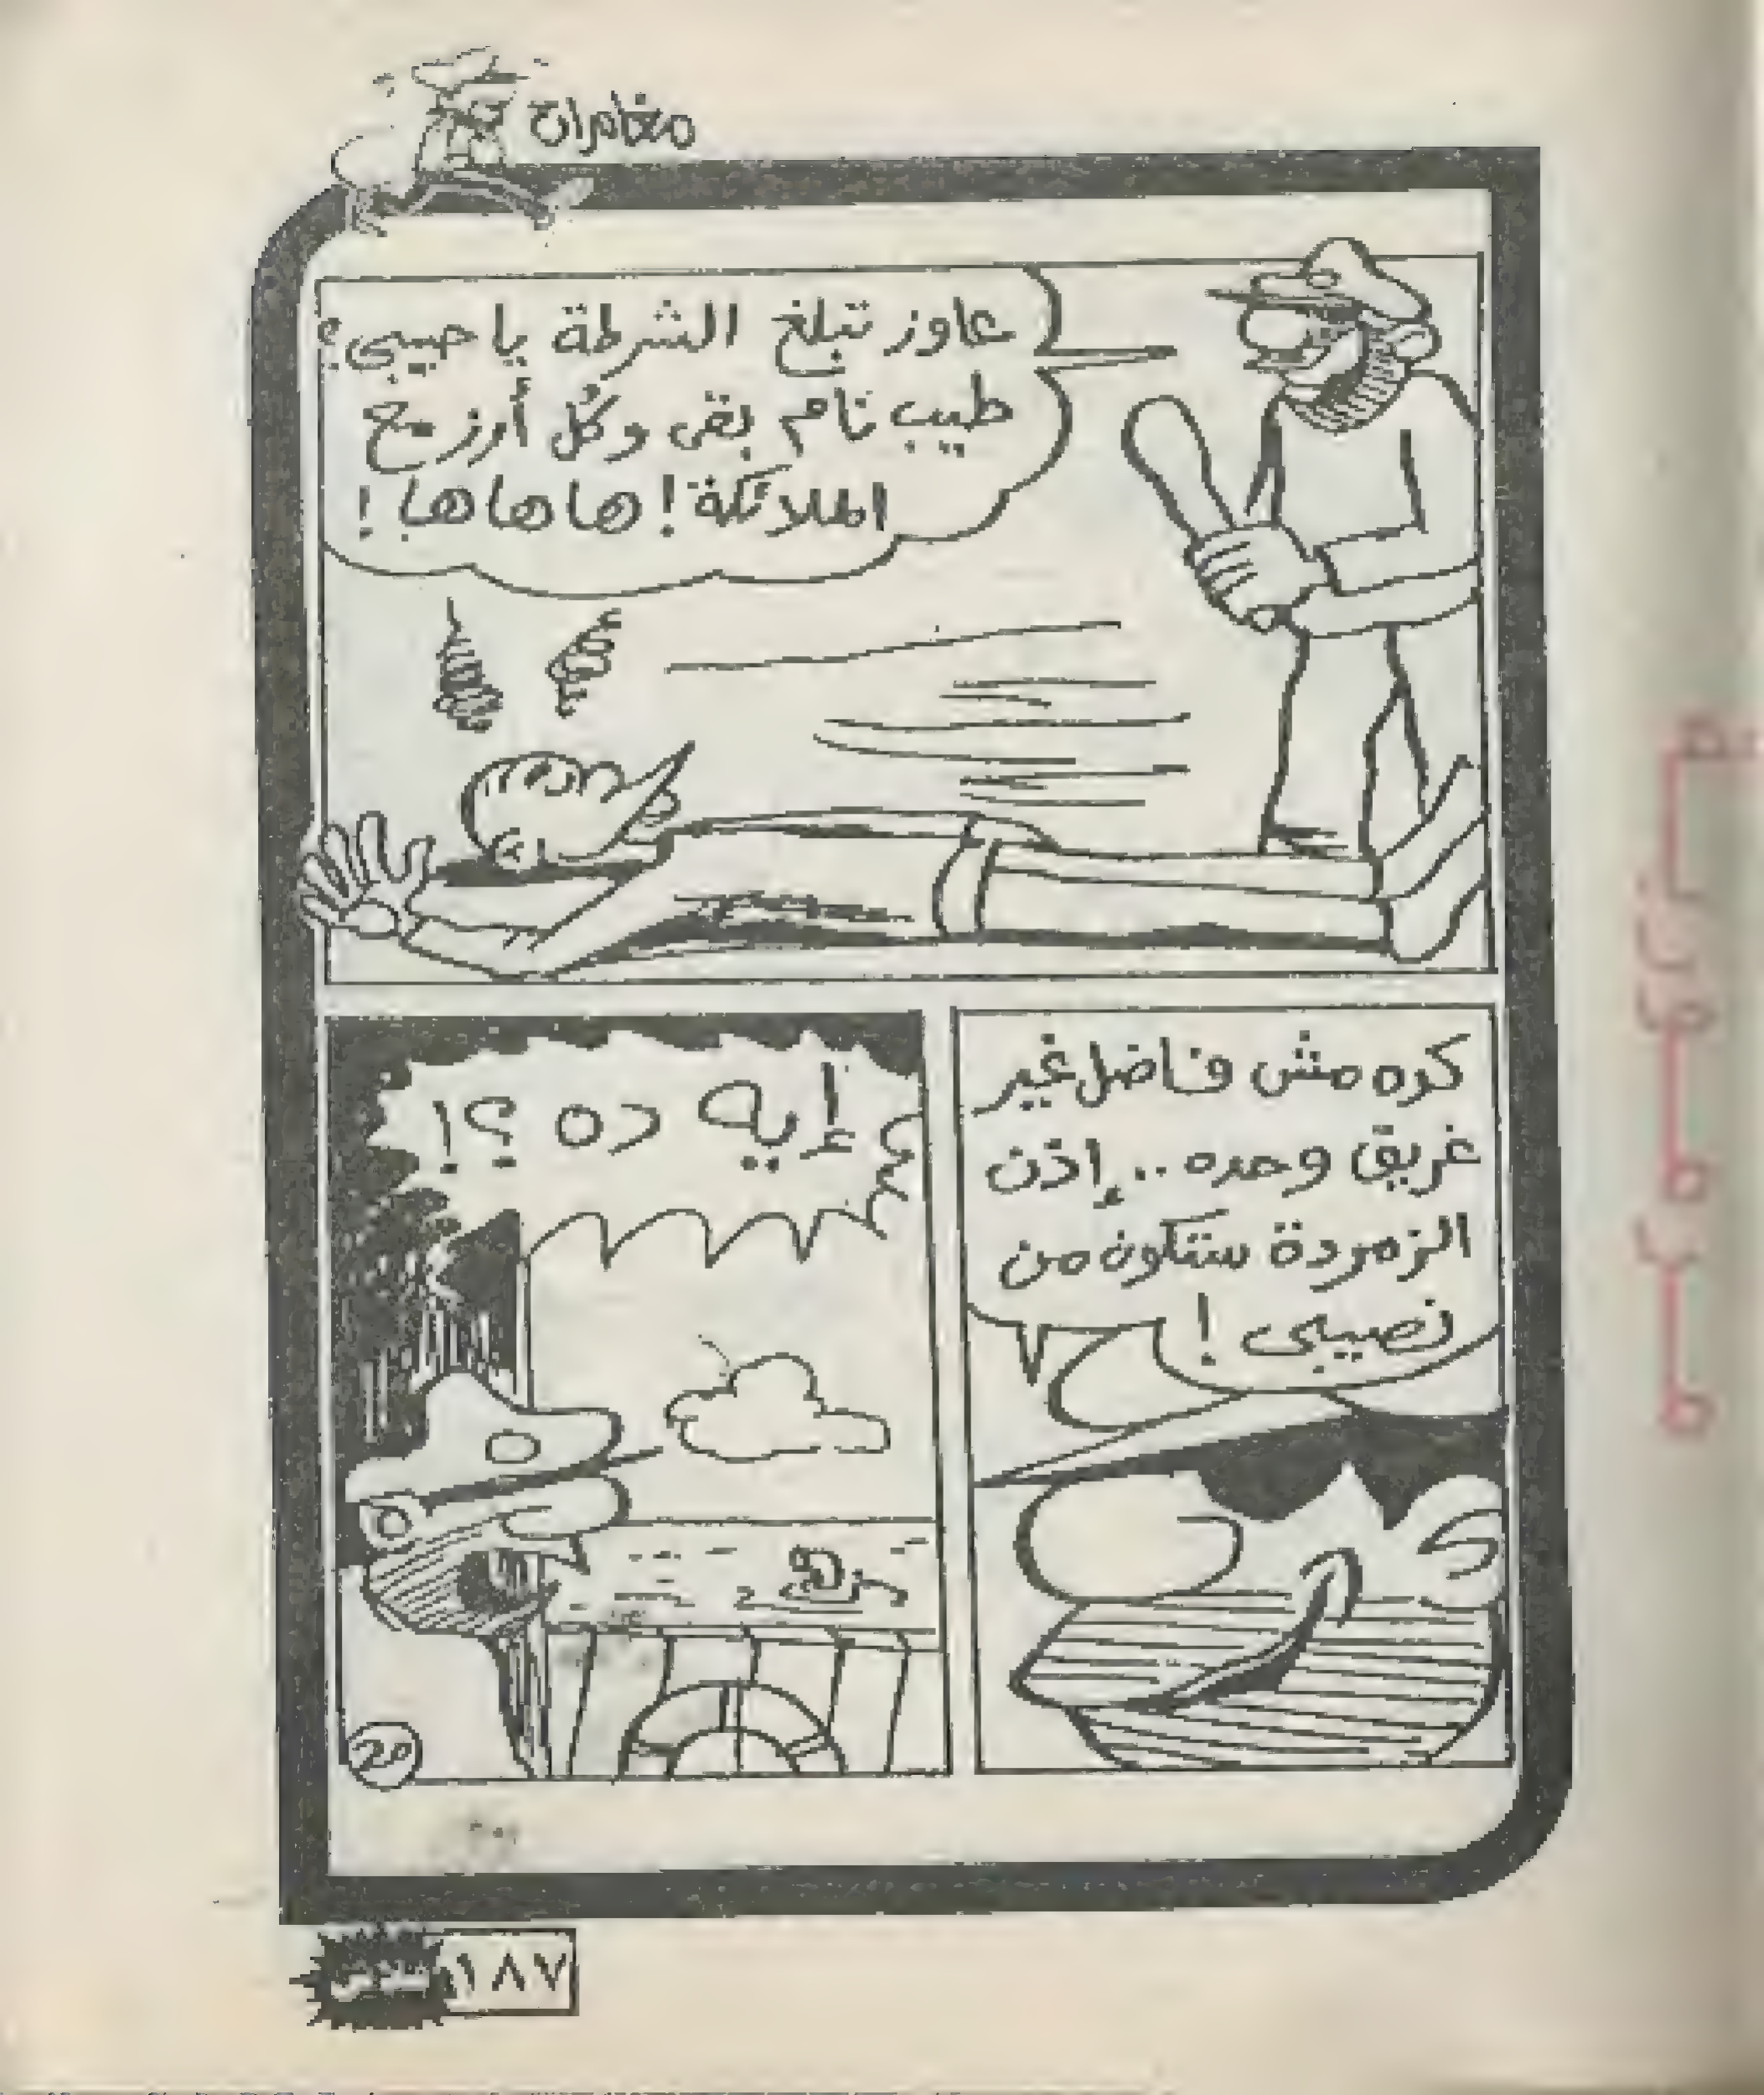 مغامرات
عاوز تبلغ الشرطة يا حبيبي؟
طيب نام بقى وكُل أرز مع
الملائكة! هاهاها!
كده مش فاضل غير
غريق وحده.. إذن
الزمردة ستكون من
نصيبى!
إيه ده؟!
20
فلاش
١٨٧